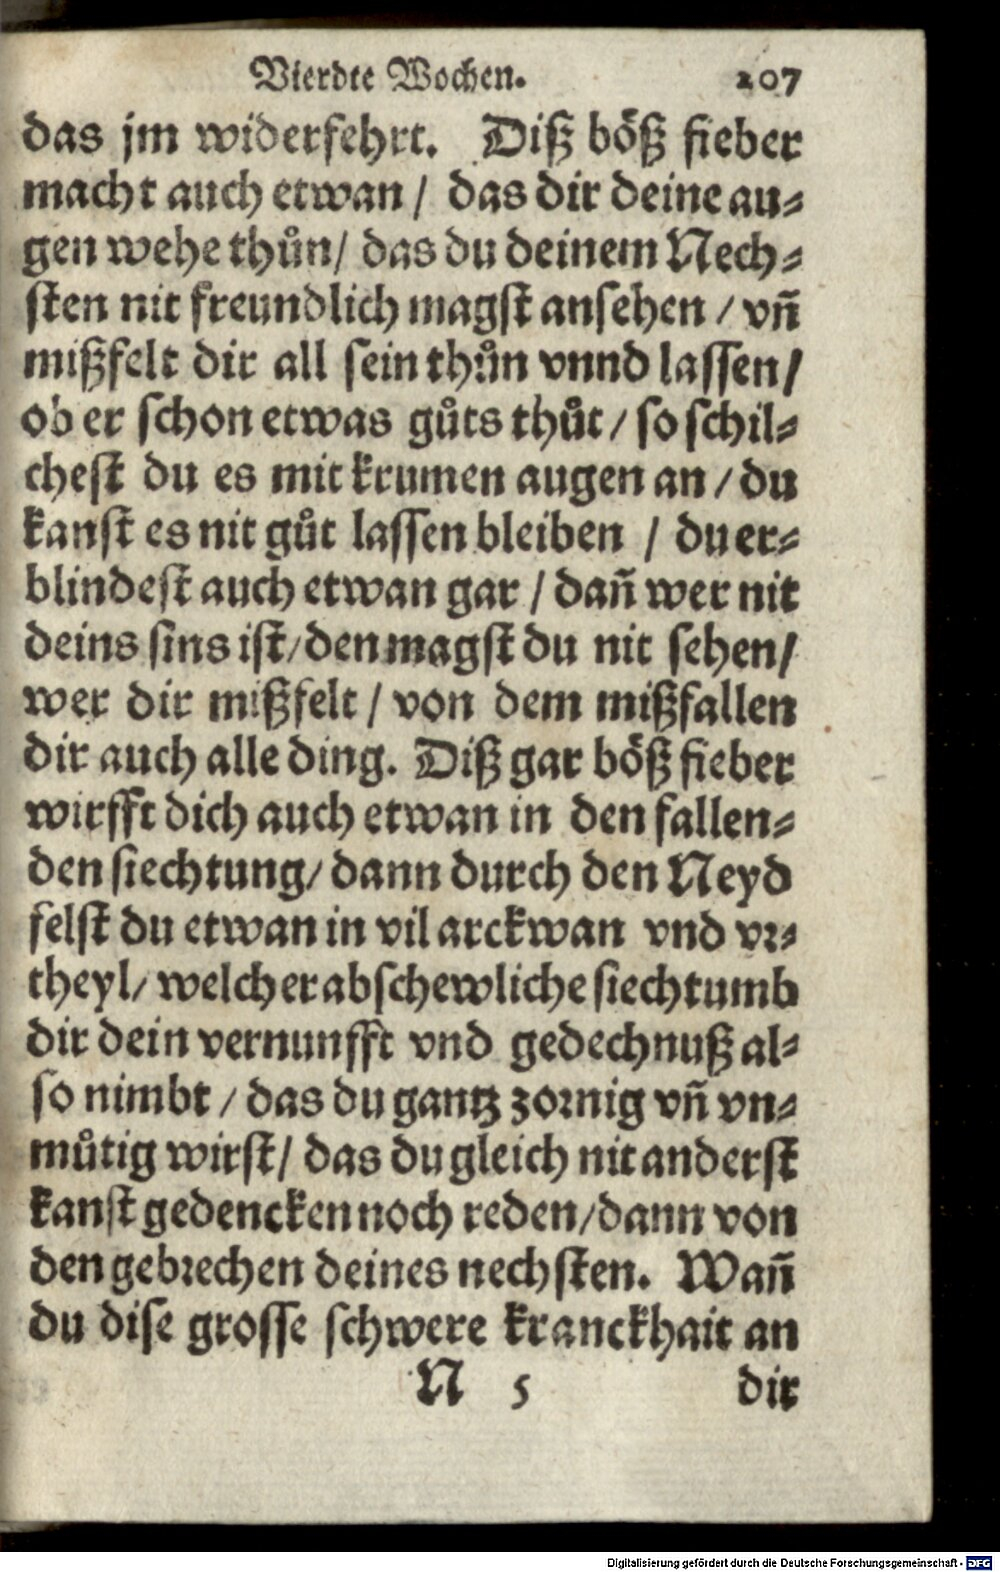 Vierdte Wochen. 207
das jm widerfehrt. Diß böß fieber
macht auch etwan / das dir deine au⸗
gen wehe thůn / das du deinem Nech⸗
sten nit freundlich magst ansehen / vñ
mißfelt dir all sein thůn vnnd lassen /
ob er schon etwas gůts thůt / so schil⸗
chest du es mit krumen augen an / du
kanst es nit gůt lassen bleiben / du er⸗
blindest auch etwan gar / dañ wer nit
deins sins ist / den magst du nit sehen /
wer dir mißfelt / von dem mißfallen
dir auch alle ding. Diß gar böß fieber
wirfft dich auch etwan in den fallen⸗
den siechtung / dann durch den Neyd
felst du etwan in vil arckwan vnd vr⸗
theyl / welcher abschewliche siechtumb
dir dein vernunfft vnd gedechnuß al⸗
so nimbt / das du gantz zornig vñ vn⸗
můtig wirst / das du gleich nit anderst
kanst gedencken noch reden / dann von
den gebrechen deines nechsten. Wañ
du dise grosse schwere kranckhait an
N 5 dir
Digitalisierung gefördert durch die Deutsche Forschungsgemeinschaft - DFG